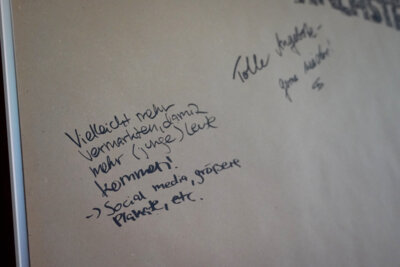 Vielleicht mehr
vermarkten, damit
mehr (junge) Leute
kommen!
-> Social media, größere
Plakate, etc.
Tolle Angebote -
gerne